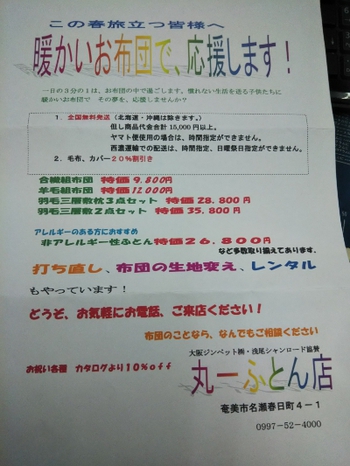 この春旅立つ皆様へ
暖かいお布団で、応援します！
一日の3分の1は、お布団の中で過ごします。慣れない生活を送る子供たちに
暖かいお布団で その夢を、応援しませんか？
1. 全国無料発送（北海道・沖縄は除きます。）
但し商品代金合計 15,000円以上。
ヤマト便使用の場合は、時間指定ができません。
西濃運輸での配送は、時間指定、日曜祭日指定ができません。
2. 毛布、カバー20%割引き
合繊組布団 特価9.800円
羊毛組布団 特価12000円
羽毛三層敷枕3点セット 特価28.800円
羽毛三層敷2点セット 特価35.800円
アレルギーのある方におすすめ
非アレルギー性ふとん特価26.800円
など多数取り揃えてあります。
打ち直し、布団の生地変え、レンタル
もやっています！
どうぞ、お気軽にお電話、ご来店ください！
布団のことなら、なんでもご相談ください
大阪ジンペット㈱・浅尾シャンロード協賛
お祝い各種 カタログより10%off
丸一ふとん店
奄美市名瀬春日町4－1
0997-52-4000